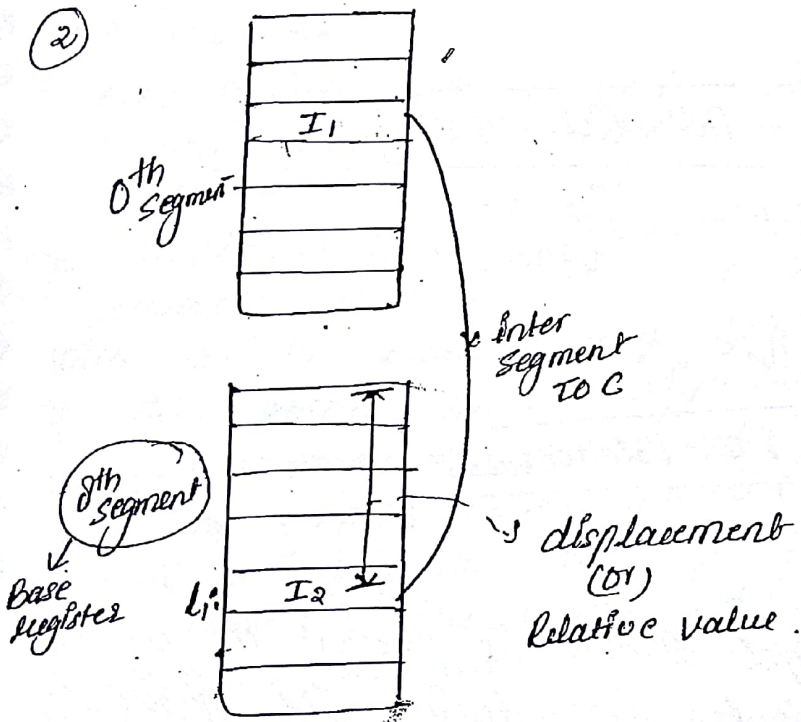 2
I1
0th
segment
inter
segment
TOC
8th
segment
Base
register
l1:
I2
displacement
(or)
Relative value.